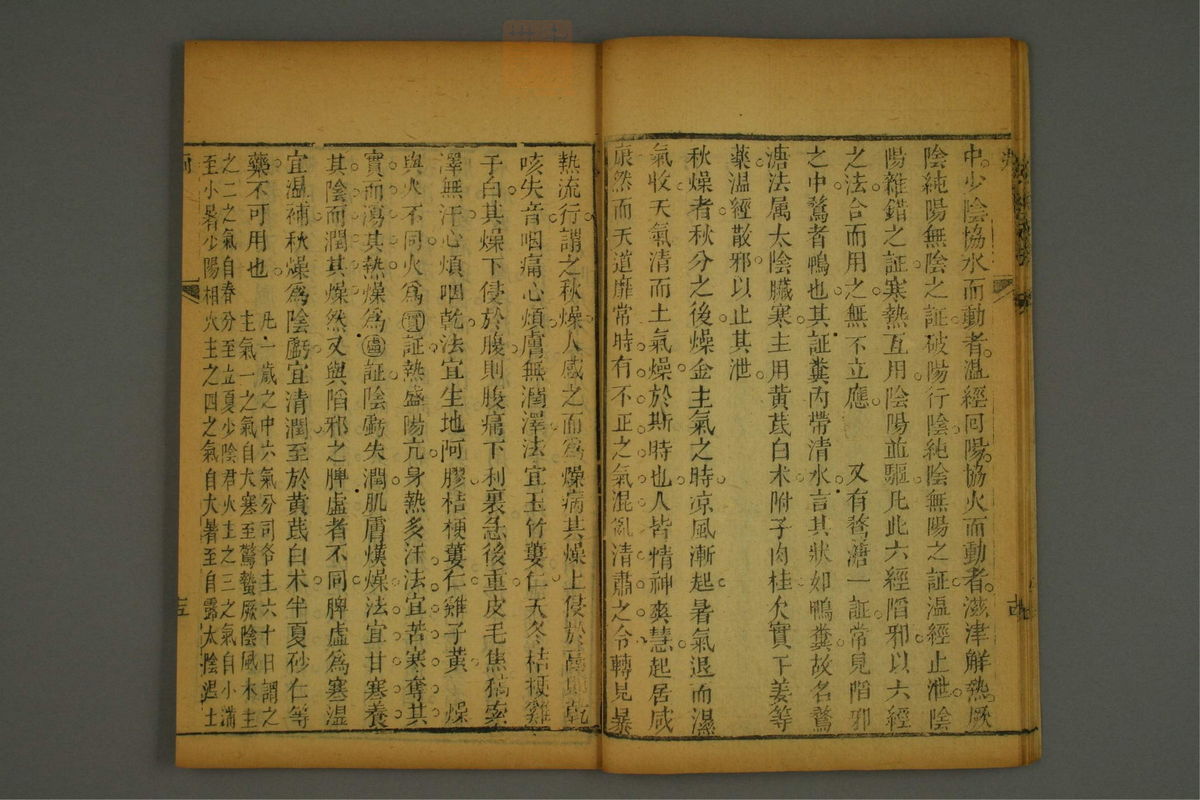 中少陰協水而動者溫經回陽協火而動者滋津解熱厥
陰純陽無陰之証破陽行陰純陰無陽之証溫經止泄陰
陽雜錯之証寒熱互用陰陽並驅凡此六經陷邪以六經
之法合而用之無不立應 又有鶩溏一証常見陷邪
之中鶩者鴨也其証糞內帶清水言其狀如鴨糞故名鶩
溏法属太陰臟寒主用黃芪白术附子肉桂欠實干姜等
藥溫經散邪以止其泄
秋燥者秋分之後燥金主氣之時凉風漸起暑氣退而濕
氣收天氣清而土氣燥於斯時也人皆情神爽慧起居咸
康然而天道靡常時有不正之氣混亂清肅之令轉見暴
熱流行謂之秋燥人感之而爲燥病其燥上侵於則乾
咳失音咽痛心煩膚無潤澤法宜玉竹蔞仁天冬桔梗雞
子白其燥下侵於腹則腹痛下利裏急後重皮毛焦槁索
澤無汗心煩咽乾法宜生地阿膠桔梗蔞仁雞子黃 燥
與火不同火爲實証熱盛陽亢身熱多汗法宜苦寒奪其
實而瀉其熱燥爲虛証陰虧失潤肌膚熯燥法宜甘寒養
其陰而潤其燥然又與陷邪之脾虛者不同脾虛爲寒濕
宜溫補秋燥爲陰虧宜清潤至於黃芪白术半夏砂仁等
藥不可用也 凡一歲之中六氣分司各主六十日謂之
主氣一之氣自大寒至驚蟄厥陰風木主
之二之氣自春分至立夏少陰君火主之三之氣自小滿
至小暑少陽相火主之四之氣自大暑至白露太陰濕土